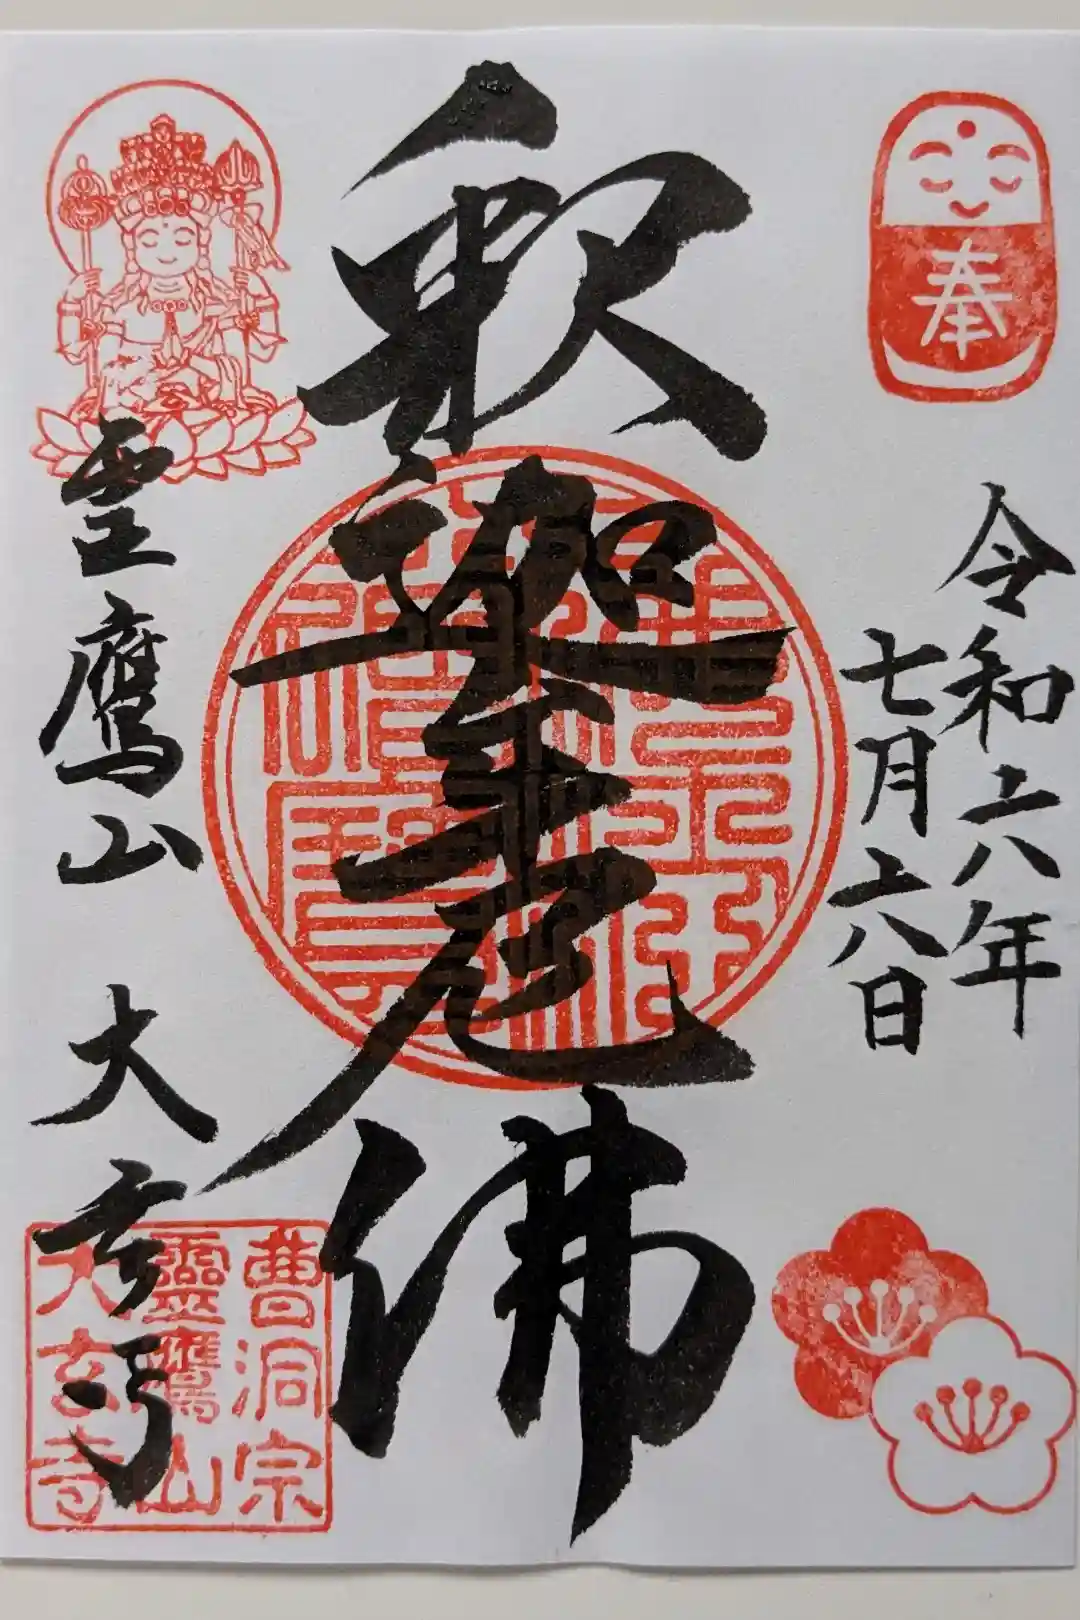 奉
令和六年
七月六日
釈迦牟尼佛
霊鷹山 大玄寺
曹洞宗
靈鷹山
大玄寺